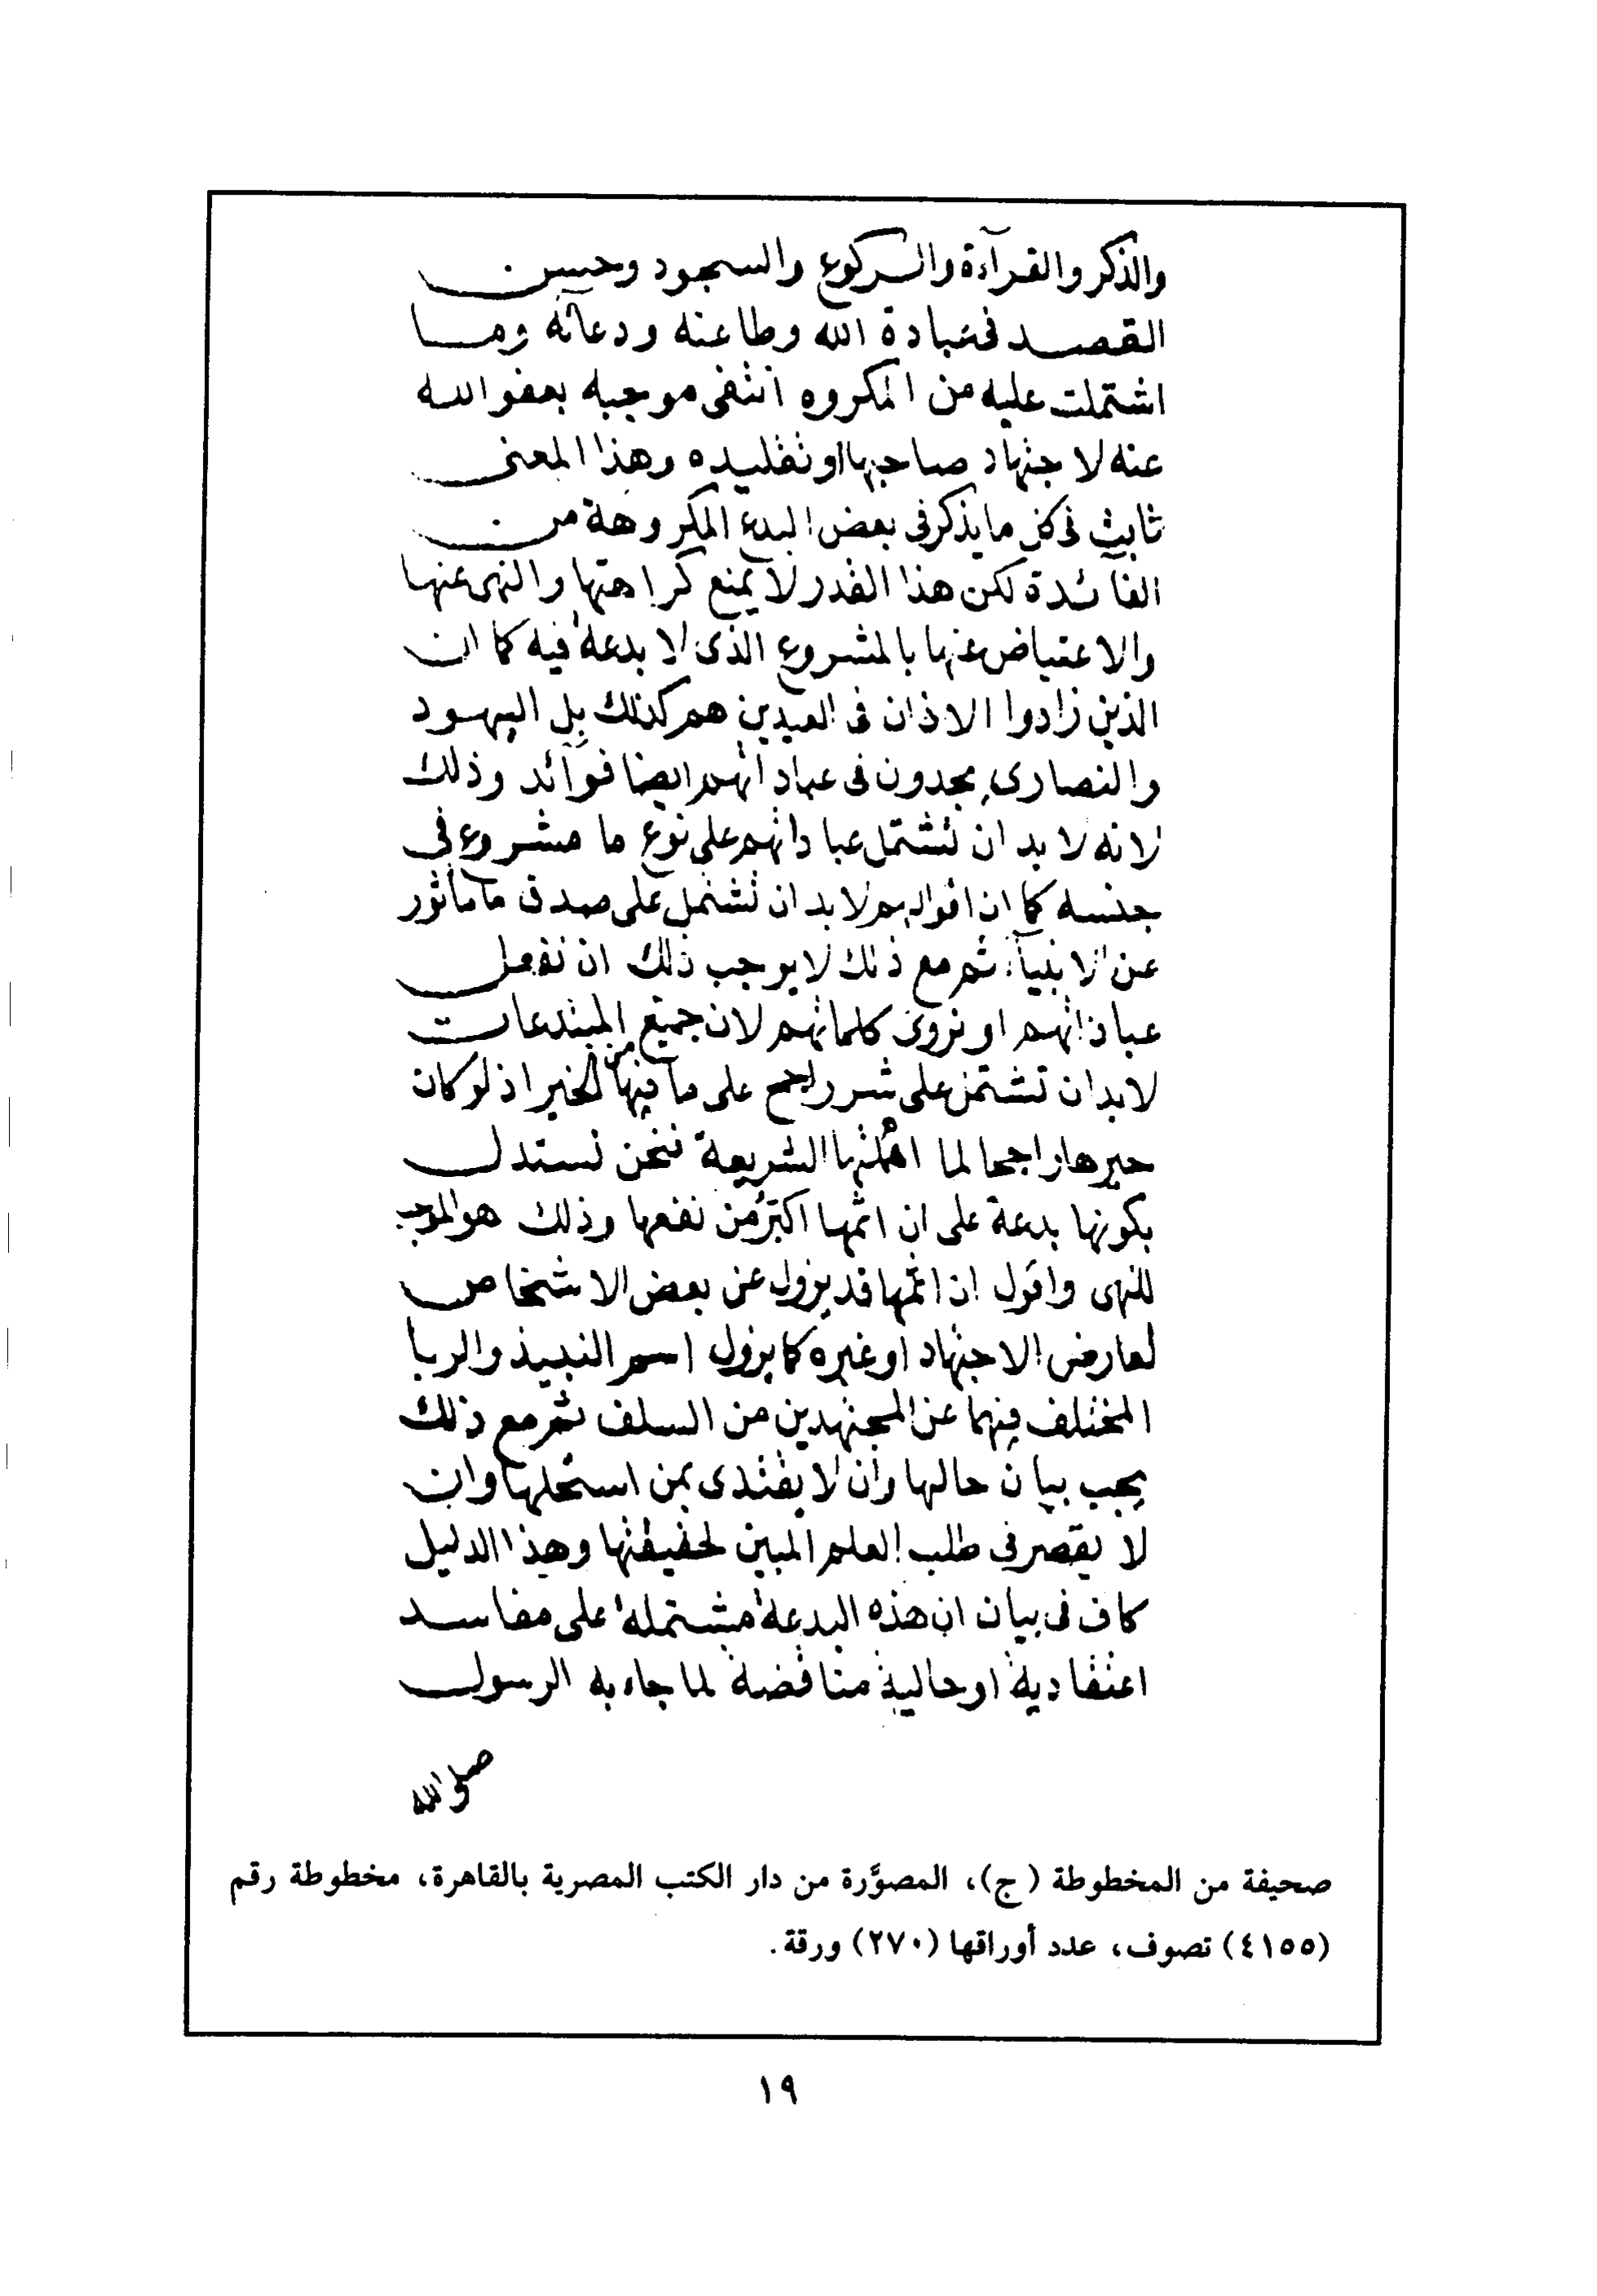 والذكر والقرآءة والركوع والسجود وحسن
القصد فى عبادة الله وطاعته ودعآئه وما
اشتملت عليه من المكروه انتفى موجبه بعفو الله
عنه لاجتهاد صاحبها او تقليده وهذا المعنى
ثابت فى كل ما يذكر فى بعض البدع المكروهة من
الفآئدة لكن هذا القدر لا يمنع كراهتها والنهى عنها
والاعتياض عنها بالمشروع الذى لا بدعة فيه كما ان
الذين زادوا الاذان فى العيدين هم كذلك بل اليهود
والنصارى يجدون فى عباداتهم ايضا فوآئد وذلك
لانه لا بد ان تشتمل عباداتهم على نوع ما مشروع فى
جنسه كما ان اقوالهم لا بد ان تشتمل على صدق ما مأثور
عن الانبيآء ثم مع ذلك لا يوجب ذلك ان نفعل
عباداتهم او نروى كلماتهم لان جميع المبتدعات
لا بد ان تشتمل على شر راجح على ما فيها من الخير اذ لو كان
خيرها راجحا لما اهملتها الشريعة فنحن نستدل
بكونها بدعة على ان اثمها اكبر من نفعها وذلك هو الموجب
للنهى واقول ان اثمها قد يزول عن بعض الاشخاص
لعارض الاجتهاد او غيره كما يزول اسم النبيذ والربا
المختلف فيهما عن المجتهدين من السلف ثم مع ذلك
يجب بيان حالها وان لا يقتدى بمن استحلها وان
لا يقصر فى طلب العلم المبين لحقيقتها وهذا الدليل
كاف فى بيان ان هذه البدعة مشتملة على مفاسد
اعتقادية او حالية مناقضة لما جاء به الرسول
صلى الله
صحيفة من المخطوطة (ج)، المصوَّرة من دار الكتب المصرية بالقاهرة، مخطوطة رقم
(٤١٥٥) تصوف، عدد أوراقها (٢٧٠) ورقة.
١٩